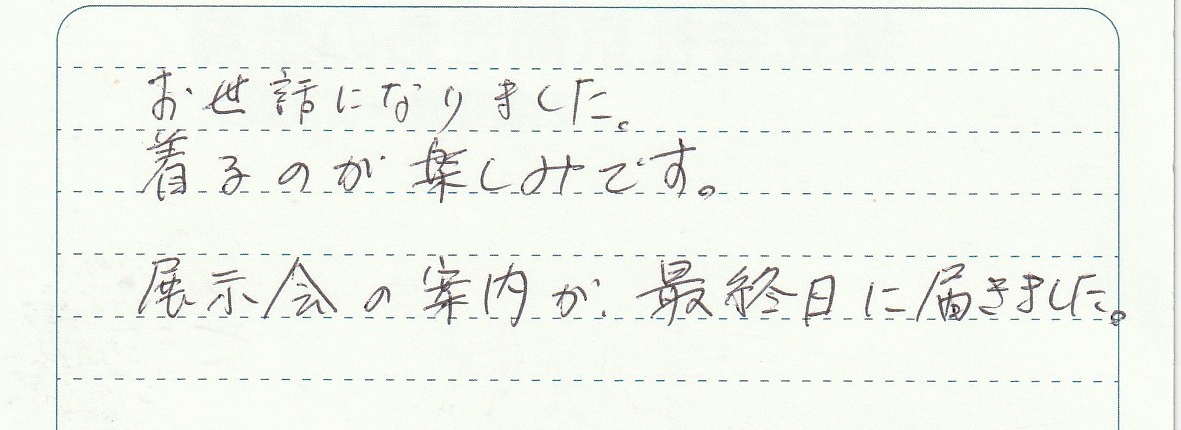 お世話になりました。
着るのが楽しみです。
展示会の案内が、最終日に届きました。